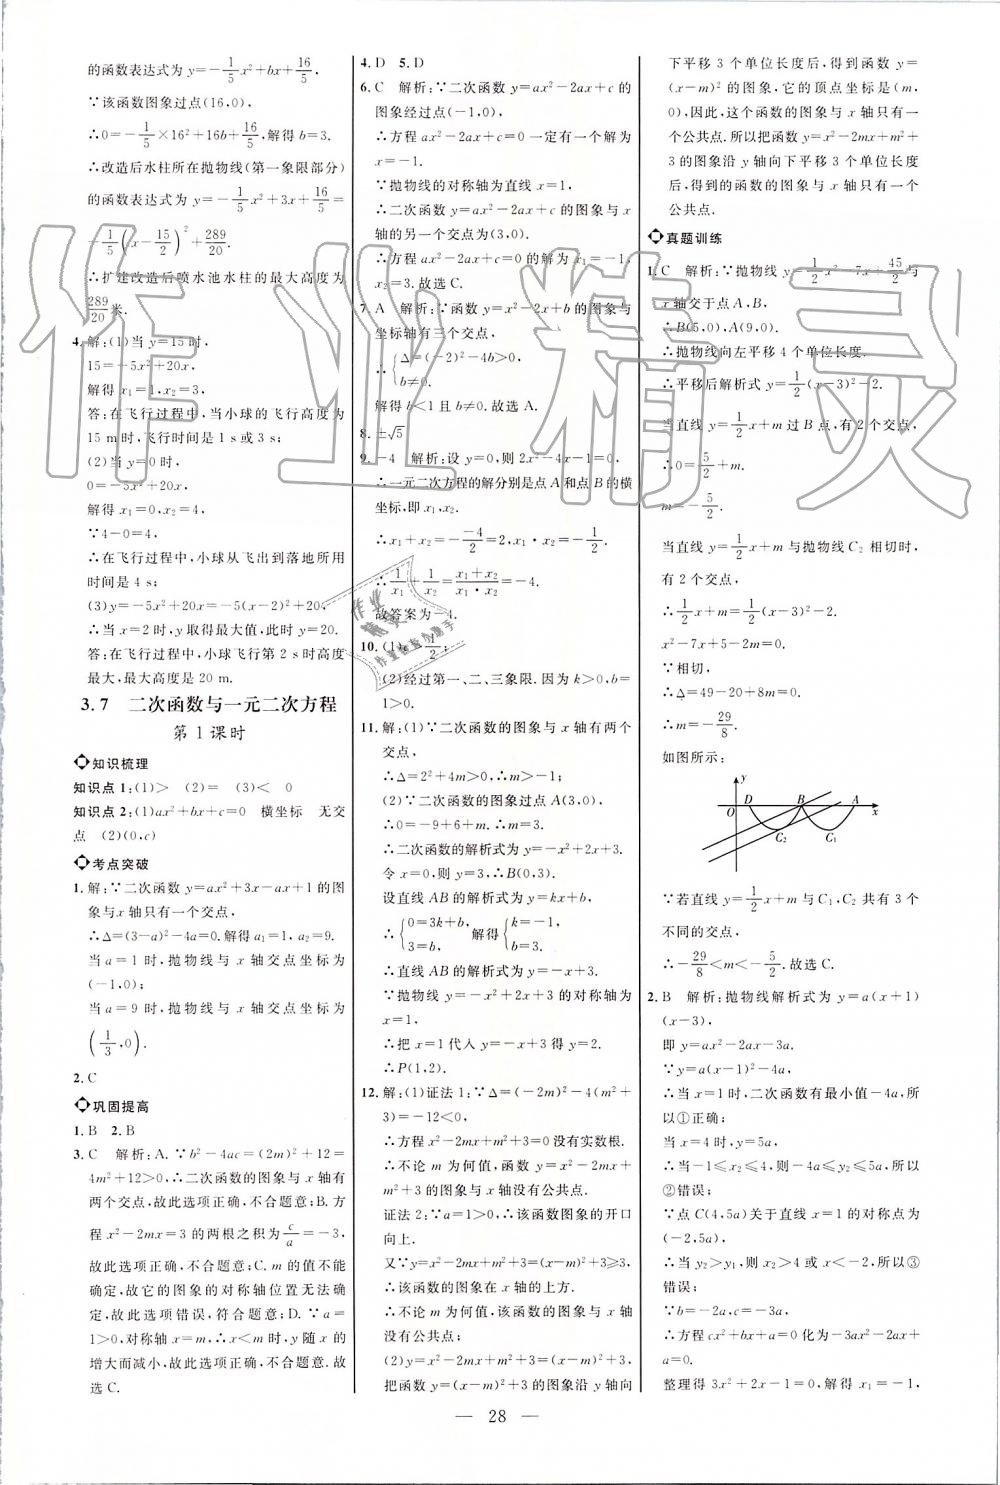 的函数表达式为y=-1/5x²+bx+16/5.
∵该函数图象过点(16,0),
∴0=-1/5×16²+16b+16/5,解得b=3.
∴改造后水柱所在抛物线(第一象限部分)
的函数表达式为y=-1/5x²+3x+16/5=
-1/5(x-15/2)²+289/20.
∴扩建改造后喷水池水柱的最大高度为
289/20米.
4.解:(1)当y=15时,
15=-5x²+20x,
解得x₁=1,x₂=3,
答:在飞行过程中,当小球的飞行高度为
15 m时,飞行时间是1 s或3 s;
(2)当y=0时,
0=-5x²+20x,
解得x₁=0,x₂=4,
∵4-0=4,
∴在飞行过程中,小球从飞出到落地所用
时间是4 s;
(3)y=-5x²+20x=-5(x-2)²+20,
∴当x=2时,y取得最大值,此时y=20.
答:在飞行过程中,小球飞行第2 s时高度
最大,最大高度是20 m.
3.7 二次函数与一元二次方程
第1课时
知识梳理
知识点1:(1)> (2)= (3)< 0
知识点2:(1)ax²+bx+c=0 横坐标 无交
点 (2)(0,c)
考点突破
1.解:∵二次函数y=ax²+3x-ax+1的图
象与x轴只有一个交点,
∴Δ=(3-a)²-4a=0.解得a₁=1,a₂=9.
当a=1时,抛物线与x轴交点坐标为
(-1,0);
当a=9时,抛物线与x轴交点坐标为
(1/3,0).
2.C
巩固提高
1.B 2.B
3.C 解析:A.∵b²-4ac=(2m)²+12=
4m²+12>0,∴二次函数的图象与x轴有
两个交点,故此选项正确,不合题意;B.方
程x²-2mx=3的两根之积为c/a=-3,
故此选项正确,不合题意;C.m的值不能
确定,故它的图象的对称轴位置无法确
定,故此选项错误,符合题意;D.∵a=
1>0,对称轴x=m,∴x<m时,y随x的
增大而减小,故此选项正确,不合题意.故
选C.
4.D 5.D
6.C 解析:∵二次函数y=ax²-2ax+c的
图象经过点(-1,0),
∴方程ax²-2ax+c=0一定有一个解为
x=-1.
∵抛物线的对称轴为直线x=1,
∴二次函数y=ax²-2ax+c的图象与x
轴的另一个交点为(3,0).
∴方程ax²-2ax+c=0的解为x₁=-1,
x₂=3.故选C.
7.A 解析:∵函数y=x²-2x+b的图象与
坐标轴有三个交点,
∴{Δ=(-2)²-4b>0,
b≠0.
解得b<1且b≠0.故选A.
8.±√5
9.-4 解析:设y=0,则2x²-4x-1=0,
∴一元二次方程的解分别是点A和点B的横
坐标,即x₁,x₂.
∴x₁+x₂=-(-4)/2=2,x₁·x₂=-1/2.
∴1/x₁+1/x₂=(x₁+x₂)/(x₁·x₂)=-4.
故答案为-4.
(2)经过第一、二、三象限.因为k>0,
b>0.
11.解:(1)∵二次函数的图象与x轴有两个
交点,
∴Δ=2²+4m>0,∴m>-1.
(2)∵二次函数的图象过点A(3,0),
∴0=-9+6+m.∴m=3.
∴二次函数的解析式为y=-x²+2x+3.
令x=0,则y=3,∴B(0,3).
设直线AB的解析式为y=kx+b,
∴{0=3k+b, 解得{k=-1,
3=b, b=3.
∴直线AB的解析式为y=-x+3.
∵抛物线y=-x²+2x+3的对称轴为
x=1,
∴把x=1代入y=-x+3得y=2.
∴P(1,2).
12.解:(1)证法1:∵Δ=(-2m)²-4(m²+
3)=-12<0,
∴方程x²-2mx+m²+3=0没有实数根.
∴不论m为何值,函数y=x²-2mx+
m²+3的图象与x轴没有公共点.
证法2:∵a=1>0,∴该函数图象的开口
向上.
又∵y=x²-2mx+m²+3=(x-m)²+3≥3,
∴该函数的图象在x轴的上方.
∴不论m为何值,该函数的图象与x轴
没有公共点;
(2)y=x²-2mx+m²+3=(x-m)²+3,
把函数y=(x-m)²+3的图象沿y轴向
下平移3个单位长度后,得到函数y=
(x-m)²的图象,它的顶点坐标是(m,
0),因此,这个函数的图象与x轴只有一
个公共点.所以把函数y=x²-2mx+m²+
3的图象沿y轴向下平移3个单位长度
后,得到的函数的图象与x轴只有一个
公共点.
真题训练
1.C 解析:∵抛物线y=1/2x²-7x+45/2与
x轴交于点A、B,
∴B(5,0),A(9,0).
∴抛物线向左平移4个单位长度.
∴平移后解析式y=1/2(x-3)²-2.
当直线y=1/2x+m过B点,有2个交点,
∴0=5/2+m.
m=-5/2.
当直线y=1/2x+m与抛物线C₂相切时,
有2个交点,
∴1/2x+m=1/2(x-3)²-2.
x²-7x+5-2m=0.
∵相切,
∴Δ=49-20+8m=0.
∴m=-29/8.
如图所示:
y
O D B A x
C₂ C₁
∵若直线y=1/2x+m与C₁、C₂共有3个
不同的交点,
∴-29/8<m<-5/2.故选C.
2.B 解析:抛物线解析式为y=a(x+1)
(x-3),
即y=ax²-2ax-3a.
∵y=a(x-1)²-4a,
∴当x=1时,二次函数有最小值-4a,所
以①正确;
当x=4时,y=5a,
∴当-1≤x₂≤4,则-4a≤y₂≤5a,所以
②错误;
∵点C(4,5a)关于直线x=1的对称点为
(-2,5a),
∴当y₂>y₁,则x₂>4或x<-2,所以③
错误;
∵b=-2a,c=-3a,
∴方程cx²+bx+a=0化为-3ax²-2ax+
a=0.
整理得3x²+2x-1=0,解得x₁=-1,
— 28 —
作业精灵